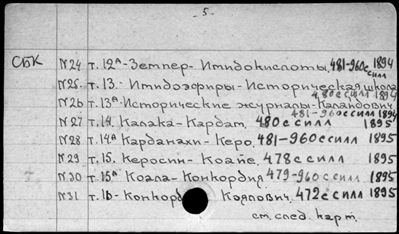 - 5 -
СБК N24 т. 12ᴬ-Земпер- Имидокислоты, 481-960 с силл 1894
N25. т. 13.- Имидоэфиры- Историческая школа 480 с силл 1894
N26 т. 13ᴬ-Исторические журналы-Калайдович, 481-960 с силл 1894
N27 т. 14. Калака-Кардам, 480 с силл 1895
N28 т. 14ᴬ Карданахи- Керо, 481-960 с силл 1895
N29 т. 15. Керосин- Коайе, 478 с силл 1895
N30 т. 15ᴬ Коала- Конкордия 479-960 с силл 1895
N31 т. 16- Конкорд Коялович, 472 с силл 1895
см. след. карт.